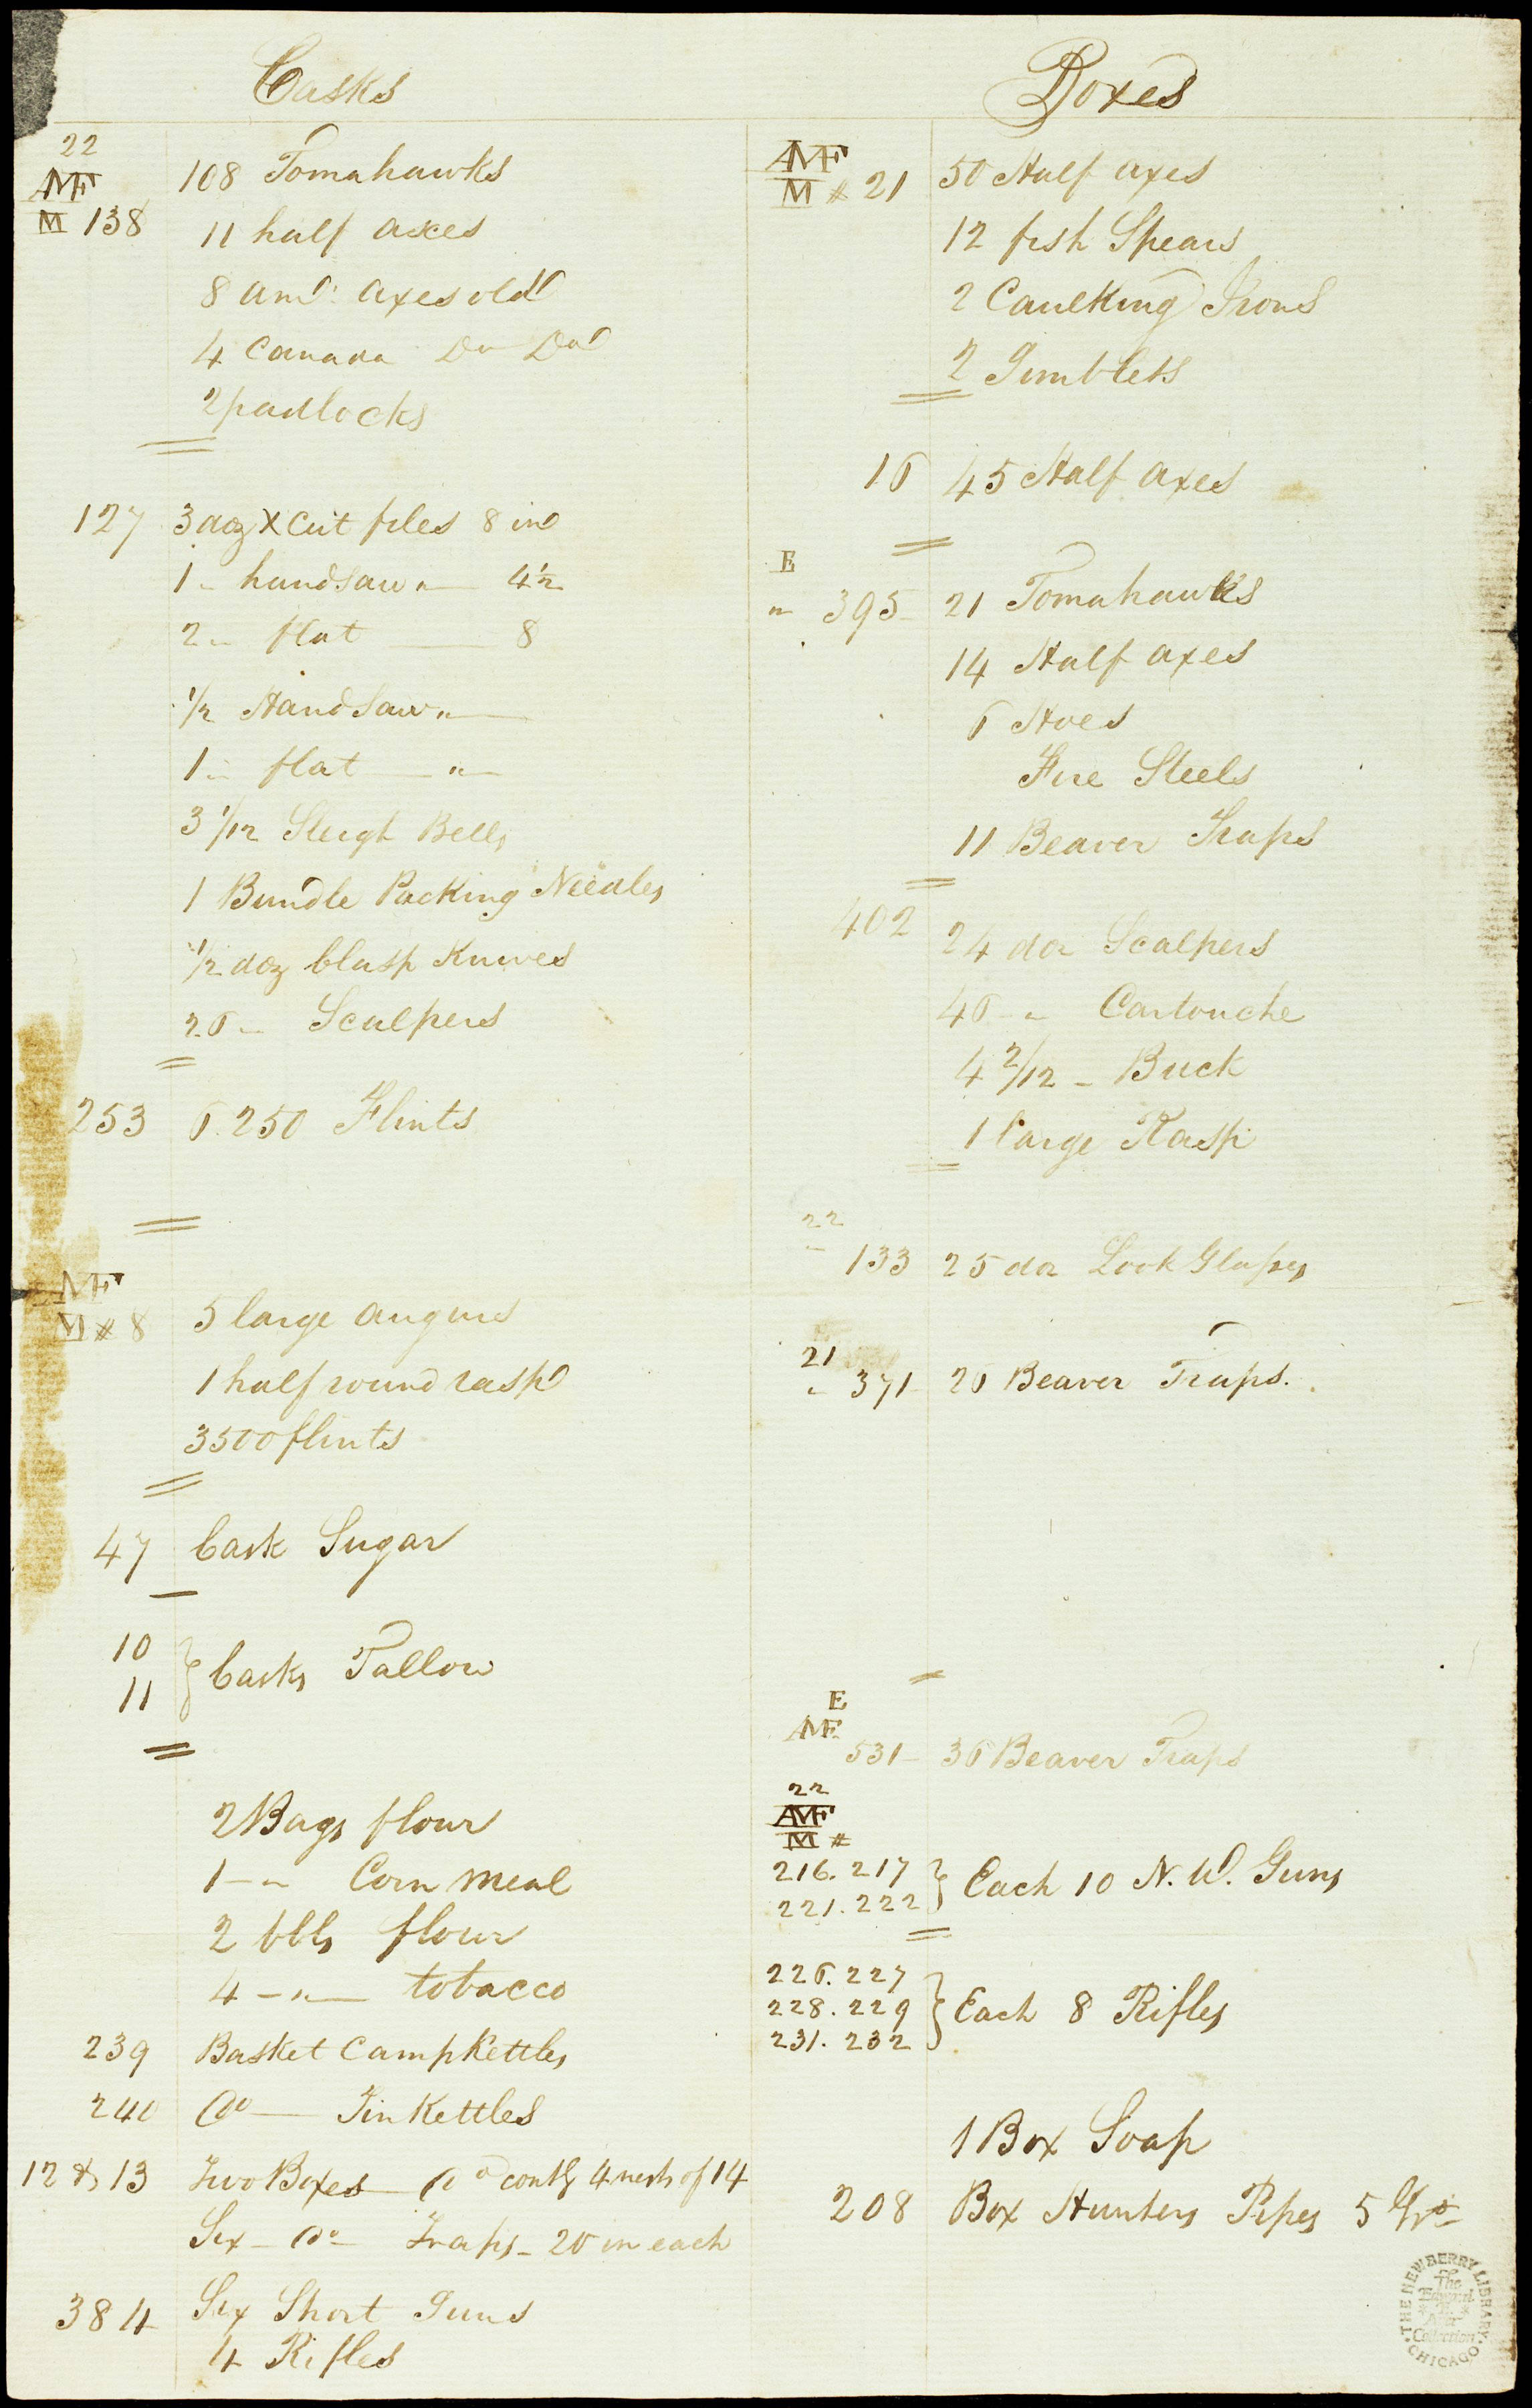 Casks
22
AMF
M 138 108 Tomahawks
11 half axes
8 amd axes old
4 Canada Do Do
2 padlocks
127 3 doz X Cut files 8 in
1 " handsaw " 4½
2 " flat 8
½ Handsaw "
1 " flat "
3 1/12 Sleigh Bells
1 Bundle Packing Needles
½ doz Clasp Knives
26 " Scalpers
253 6.250 Flints
AMF
M # 8 5 large augurs
1 half round rasp
3500 flints
47 Cask Sugar
10
11 } Casks Tallow
2 Bags flour
1 - " Corn meal
2 bbls flour
4 - " - tobacco
239 Basket Camp Kettles
240 Do - Tin Kettles
12 & 13 Two Boxes Do contg 4 nests of 14
Six - Do - Traps - 20 in each
384 Six Short Guns
4 Rifles
Boxes
AMF
M # 21 50 Half axes
12 fish Spears
2 Caulking Irons
2 Gimblets
16 45 Half axes
E
" 395 21 Tomahawks
14 Half axes
6 Hoes
Fire Steels
11 Beaver Traps
402 24 doz Scalpers
46 - " Cartouche
4 2/12 - Buck
1 large Rasp
22
" 133 25 doz Look Glasses
21
" 371 26 Beaver Traps.
E
AMF
531 - 36 Beaver Traps
22
AMF
M #
216. 217
221. 222 } Each 10 N. W. Guns
226. 227
228. 229
231. 232 } Each 8 Rifles
1 Box Soap
208 Box Hunters Pipes 5 Gro
THE NEWBERRY LIBRARY
The
Edward
E.
Ayer
Collection
CHICAGO